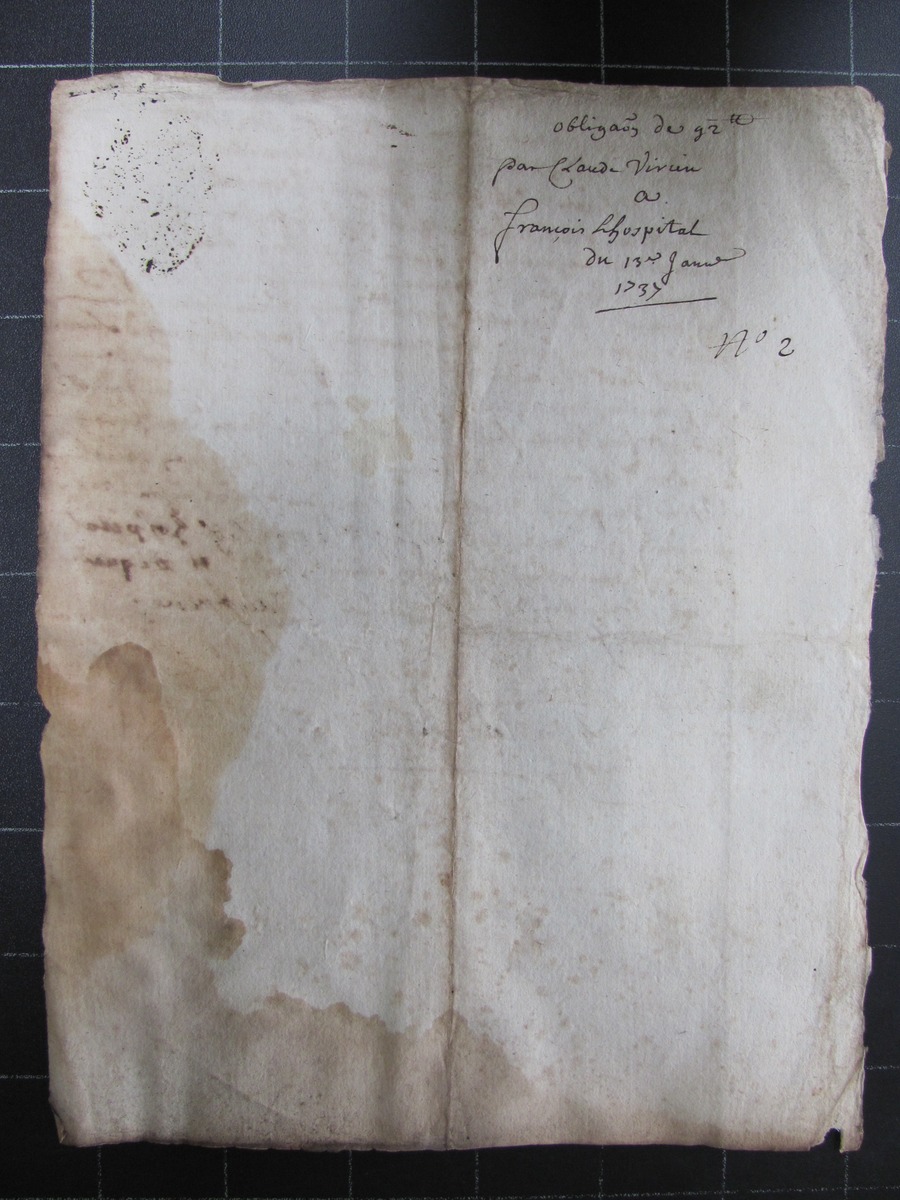 obligaõn de 92 ₶
par Claude Virieu
a
françois Lhospital
du 13er Janvr
1737
No 2